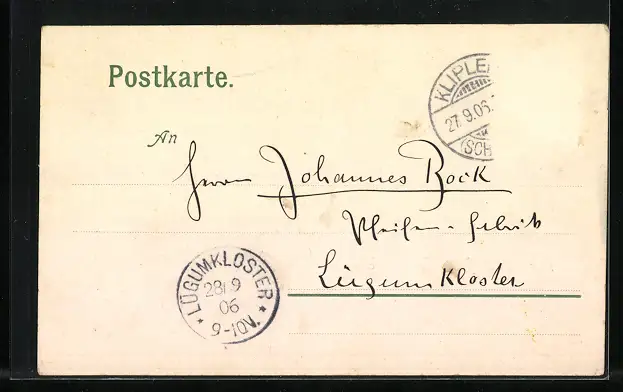 Postkarte.
KLIPLE
27.9.06.
(SCH
An
Herrn Johannes Bock
Pfeifen-Fabrik
Lügumkloster
LÜGUMKLOSTER
28 9
06
9-10V.